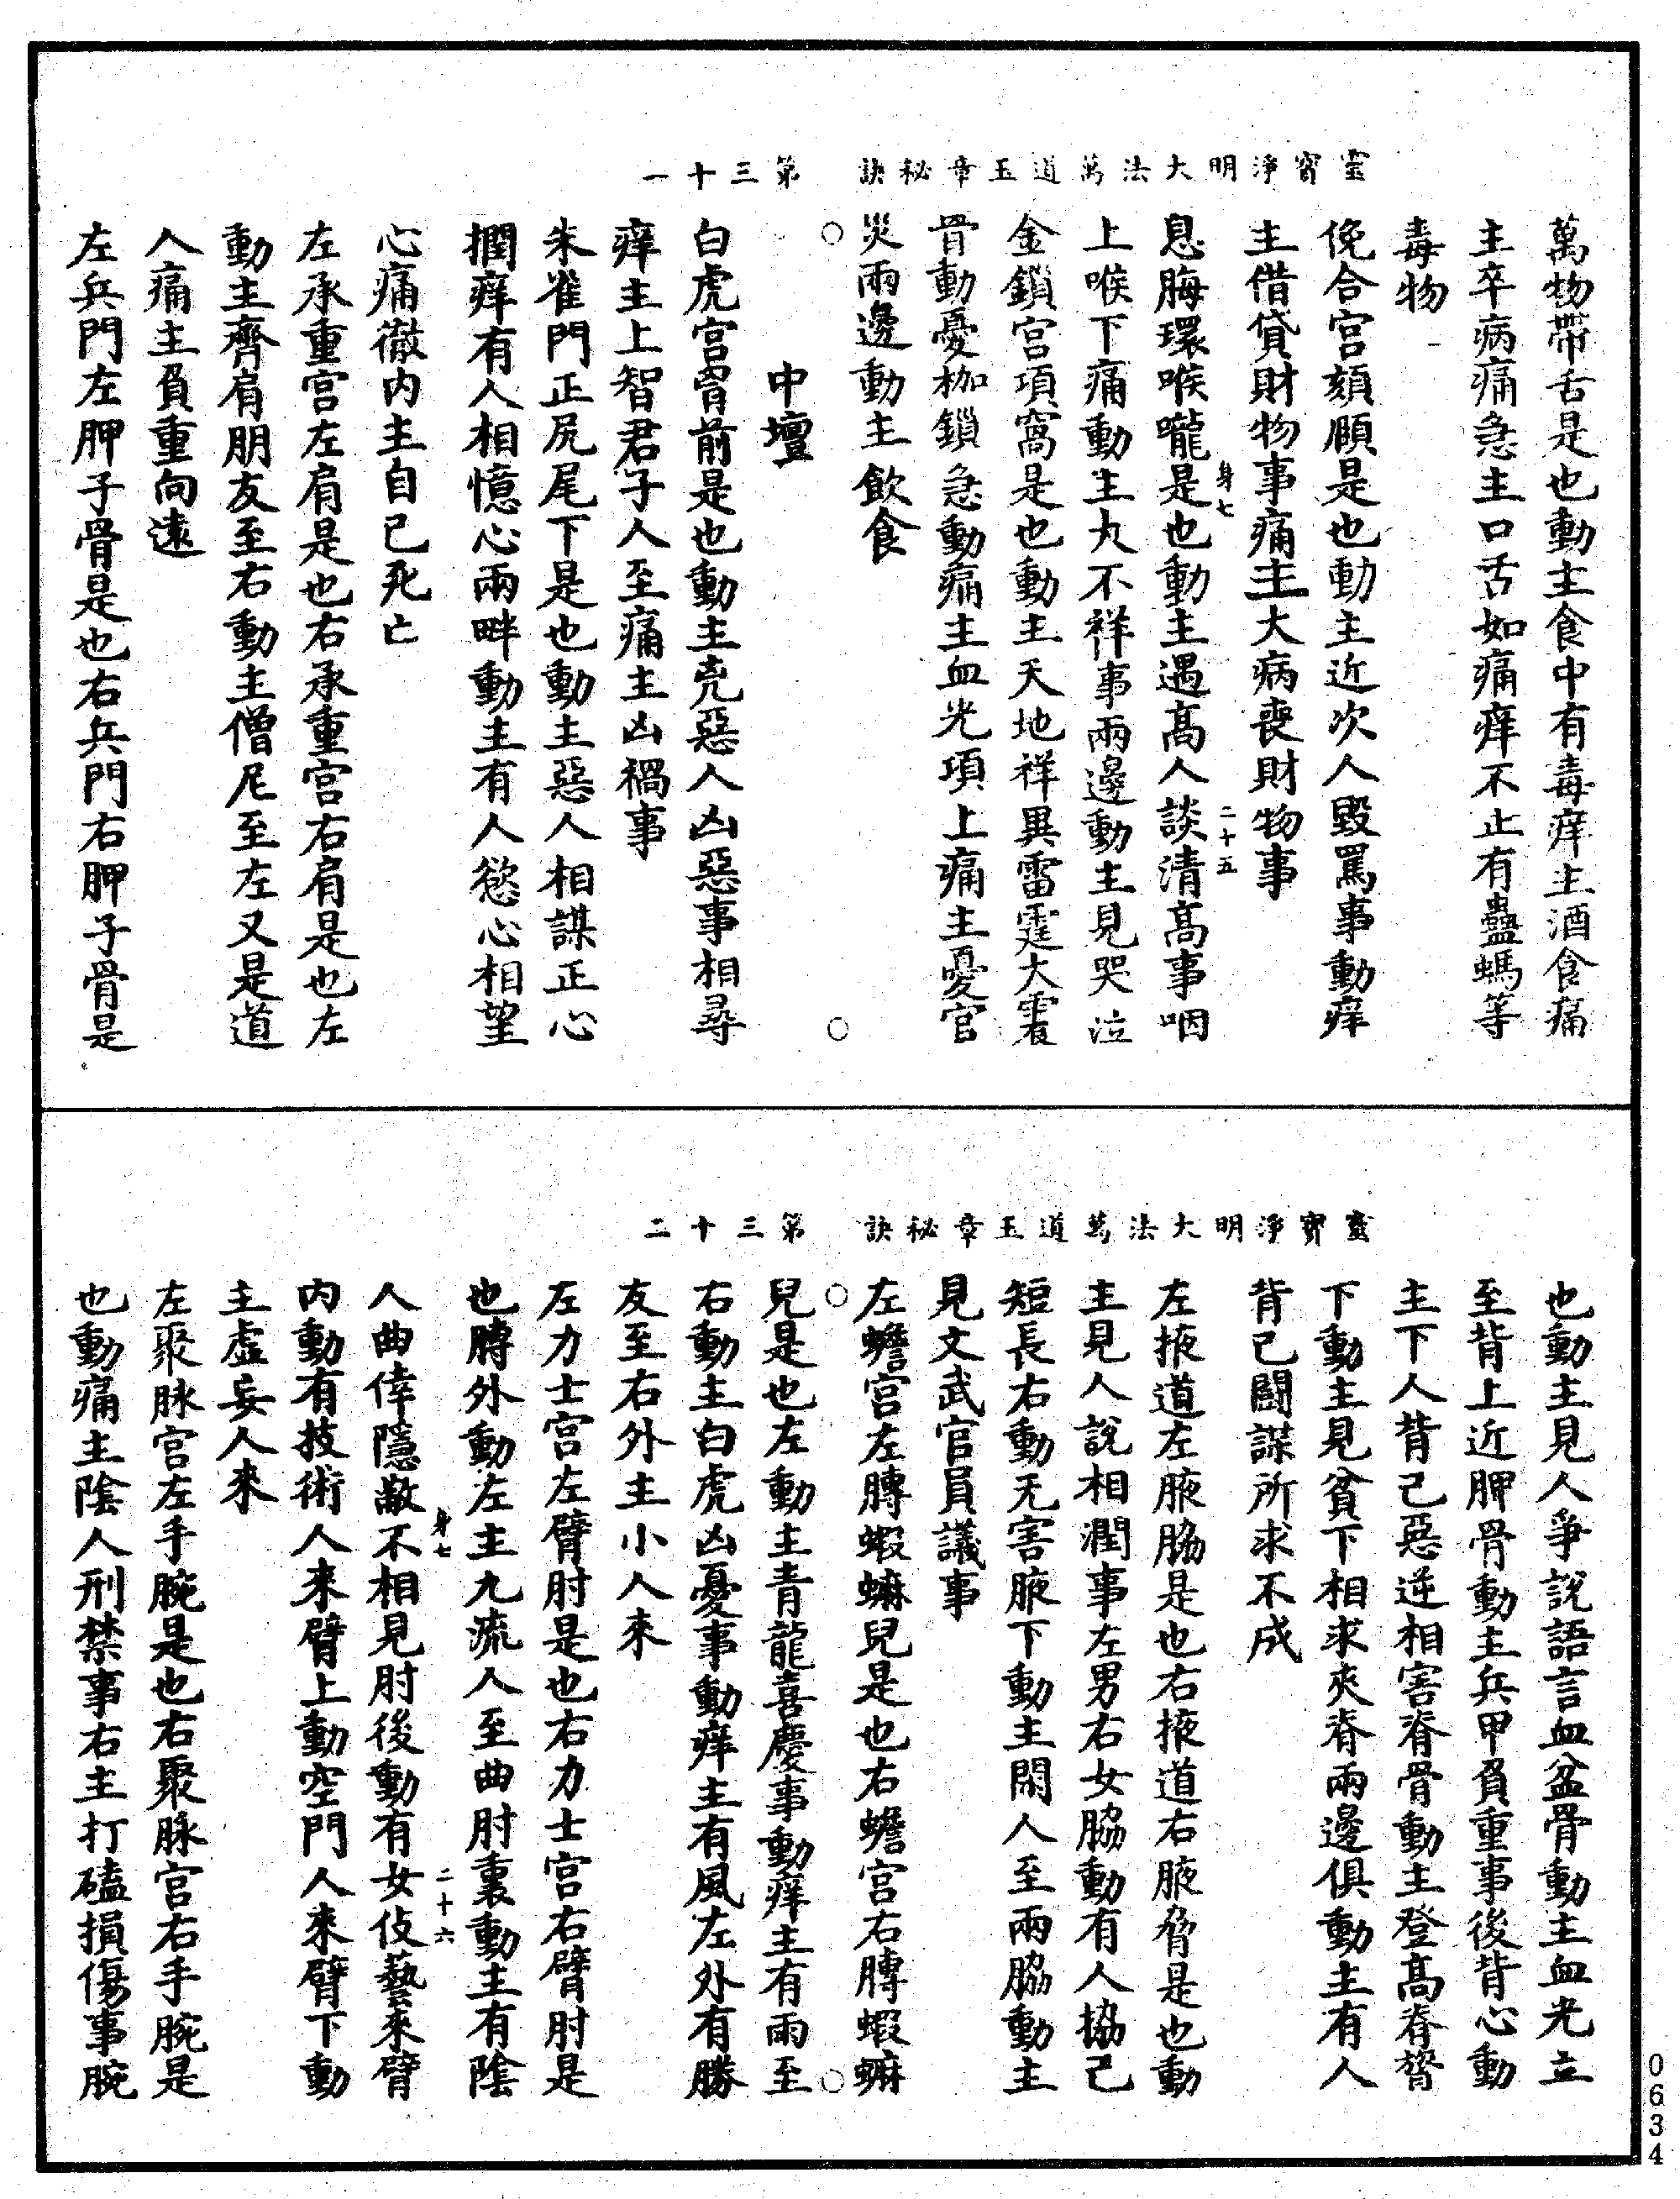 靈寳淨明大法萬道玉章秘訣　第三十一
萬物帶舌是也動主食中有毒痒主酒食痛
主卒病痛急主口舌如痛痒不止有蠱螞等
毒物
俛合宮頦願是也動主近次人毀罵事動痒
主借貸財物事痛主大病喪財物事
身七　二十五
息脢環喉嚨是也動主遇高人談清高事咽
上喉下痛動主九不祥事兩邊動主見哭泣
金鎖宮項窩是也動主天地祥異雷霆大雹
骨動憂枷鎖急動痛主血光項上痛主憂官
災兩邊動主飲食
中壇
白虎宮胷前是也動主兇惡人凶惡事相尋
痒主上智君子人至痛主凶禍事
朱雀門正尻尾下是也動主惡人相謀正心
擱痒有人相憶心兩畔動主有人慾心相望
心痛徹内主自己死亡
左承重宮左肩是也右承重宮右肩是也左
動主齊肩朋友至右動主僧尼至左又是道
人痛主負重向遠
左兵門左胛子骨是也右兵門右胛子骨是
靈寳淨明大法萬道玉章秘訣　第三十二
也動主見人爭說語言血盆骨動主血光立
至背上近胛骨動主兵甲負重事後背心動
主下人背己惡逆相害脊骨動主登高脊膂
下動主見貧下相求夾脊兩邊俱動主有人
背己鬪謀所求不成
左掖道左腋脇是也右掖道右腋脅是也動
主見人說相潤事左男右女脇動有人協己
短長右動无害腋下動主閑人至兩脇動主
見文武官員議事
左蟾宮左膊蝦蟆兒是也右蟾宮右膊蝦蟆
兒是也左動主青龍喜慶事動痒主有雨至
右動主白虎凶憂事動痒主有風左外有勝
友至右外主小人來
左力士宮左臂肘是也右力士宮右臂肘是
也膊外動左主九流人至曲肘裏動主有陰
身七　二十六
人曲倖隱蔽不相見肘後動有女伎藝來臂
内動有技術人來臂上動空門人來臂下動
主虛妄人來
左聚脉宮左手腕是也右聚脉宮右手腕是
也動痛主陰人刑禁事右主打磕損傷事腕
0634